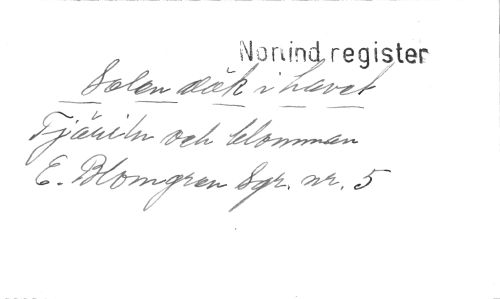 Nomind register
Solen dök i havet
Fjäriln och blomman
E. Blomgren Sgr. nr. 5